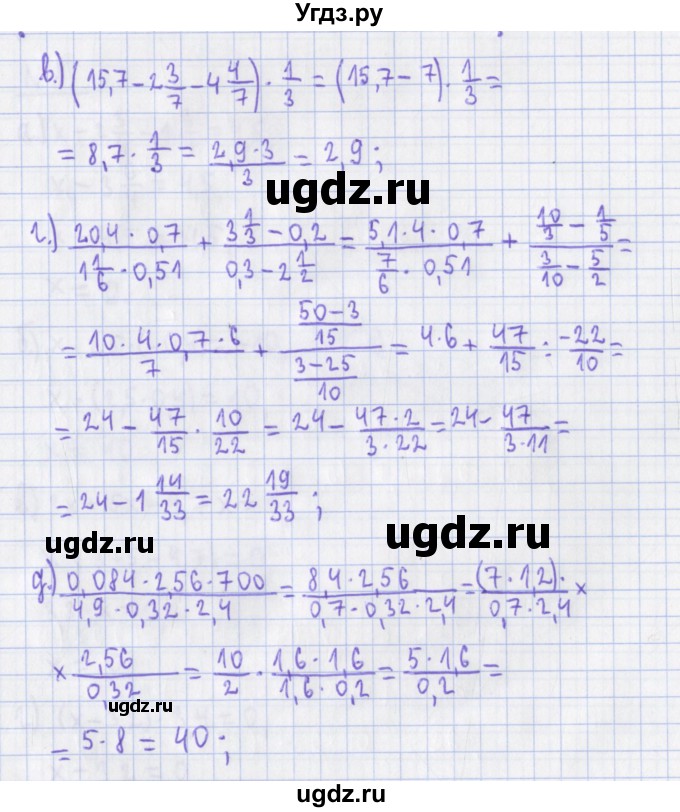 Угдз.ру
в.) (15,7 - 2 3/7 - 4 4/7) · 1/3 = (15,7 - 7) · 1/3 =
= 8,7 · 1/3 = (2,9 · 3)/3 = 2,9 ;
ugdz.ru
ugdz.ru
г.) (20,4 · 0,7)/(1 1/6 · 0,51) + (3 1/3 - 0,2)/(0,3 - 2 1/2) = (5,1 · 4 · 0,7)/(7/6 · 0,51) + (10/3 - 1/5)/(3/10 - 5/2) =
= (10 · 4 · 0,7 · 6)/7 + ((50 - 3)/15)/((3 - 25)/10) = 4 · 6 + 47/15 : (-22)/10 =
= 24 - 47/15 · 10/22 = 24 - (47 · 2)/(3 · 22) = 24 - 47/(3 · 11) =
= 24 - 1 14/33 = 22 19/33 ;
ugdz.ru
ugdz.ru
ugdz.ru
ugdz.ru
д.) (0,084 · 2,56 · 700)/(4,9 · 0,32 · 2,4) = (8,4 · 2,56)/(0,7 · 0,32 · 2,4) = (7 · 1,2) · /(0,7 · 2,4) ×
× 2,56/0,32 = 10/2 · (1,6 · 1,6)/(1,6 · 0,2) = (5 · 1,6)/0,2 =
ugdz.ru
= 5 · 8 = 40 ;